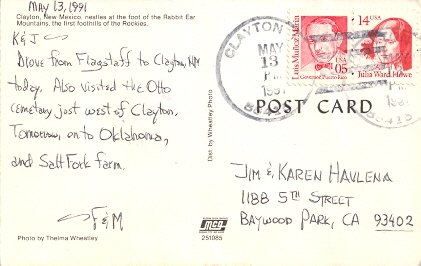 May 13, 1991
Clayton, New Mexico, nestles at the foot of the Rabbit Ear
Mountains, the first foothills of the Rockies.
K&J —
Drove from Flagstaff to Clayton, NM
today. Also visited the Otto
cemetary just west of Clayton.
Tomorrow, onto Oklahoma,
and Salt Fork farm.
F&M
Photo by Thelma Wheatley
Dist. by Wheatley Photo
MCG
251085
CLAYTON
MAY
13
1991
88415
Luis Muñoz Marín
Governor, Puerto Rico
USA
05
14 USA
Julia Ward Howe
POST CARD
Jim & Karen Havlena
1188 5th Street
Baywood Park, CA 93402